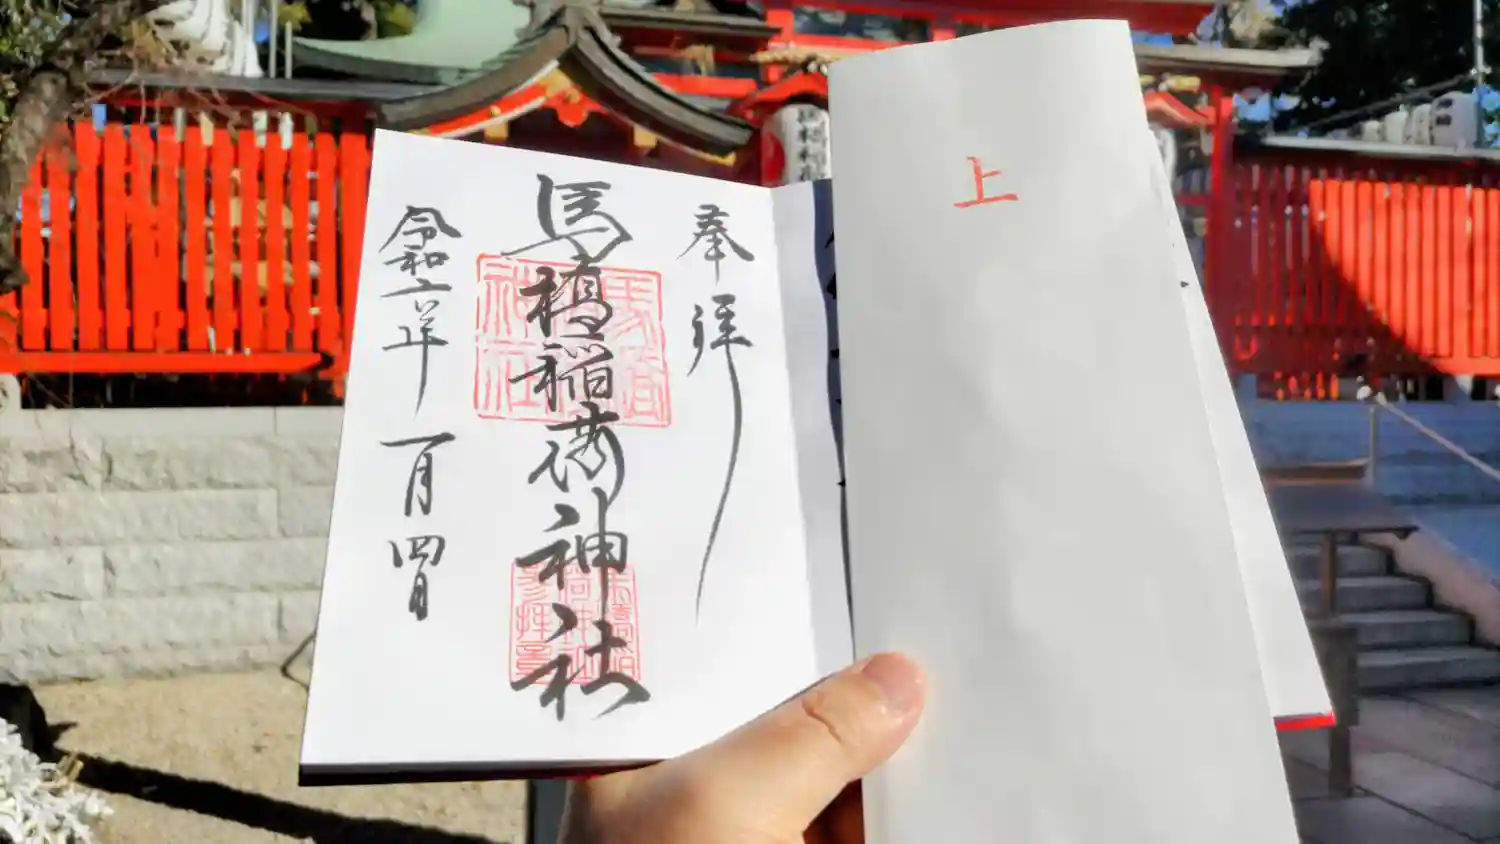 奉拝
馬橋稲荷神社
令和六年 一月四日
上